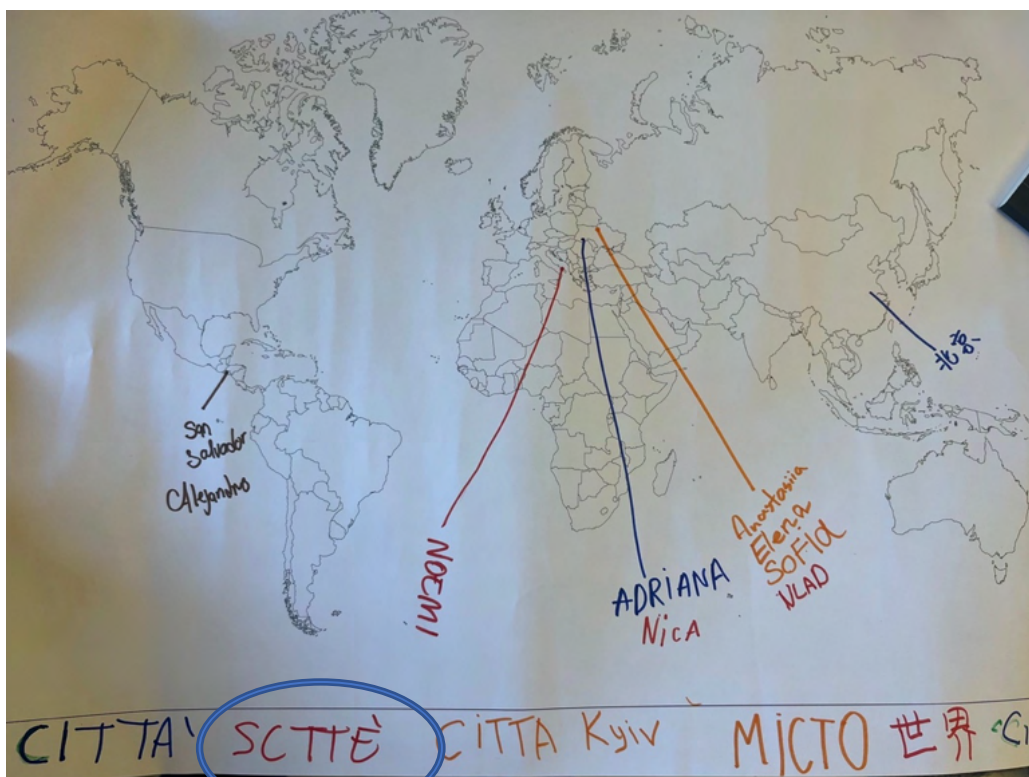 北京
San
Salvador
CAlejandro
NOEMI
ADRIANA
NicA
Anastasiia
Elena
SOFIA
VLAD
CITTA' SCTTÈ CITTA Kyiv MICTO 世界